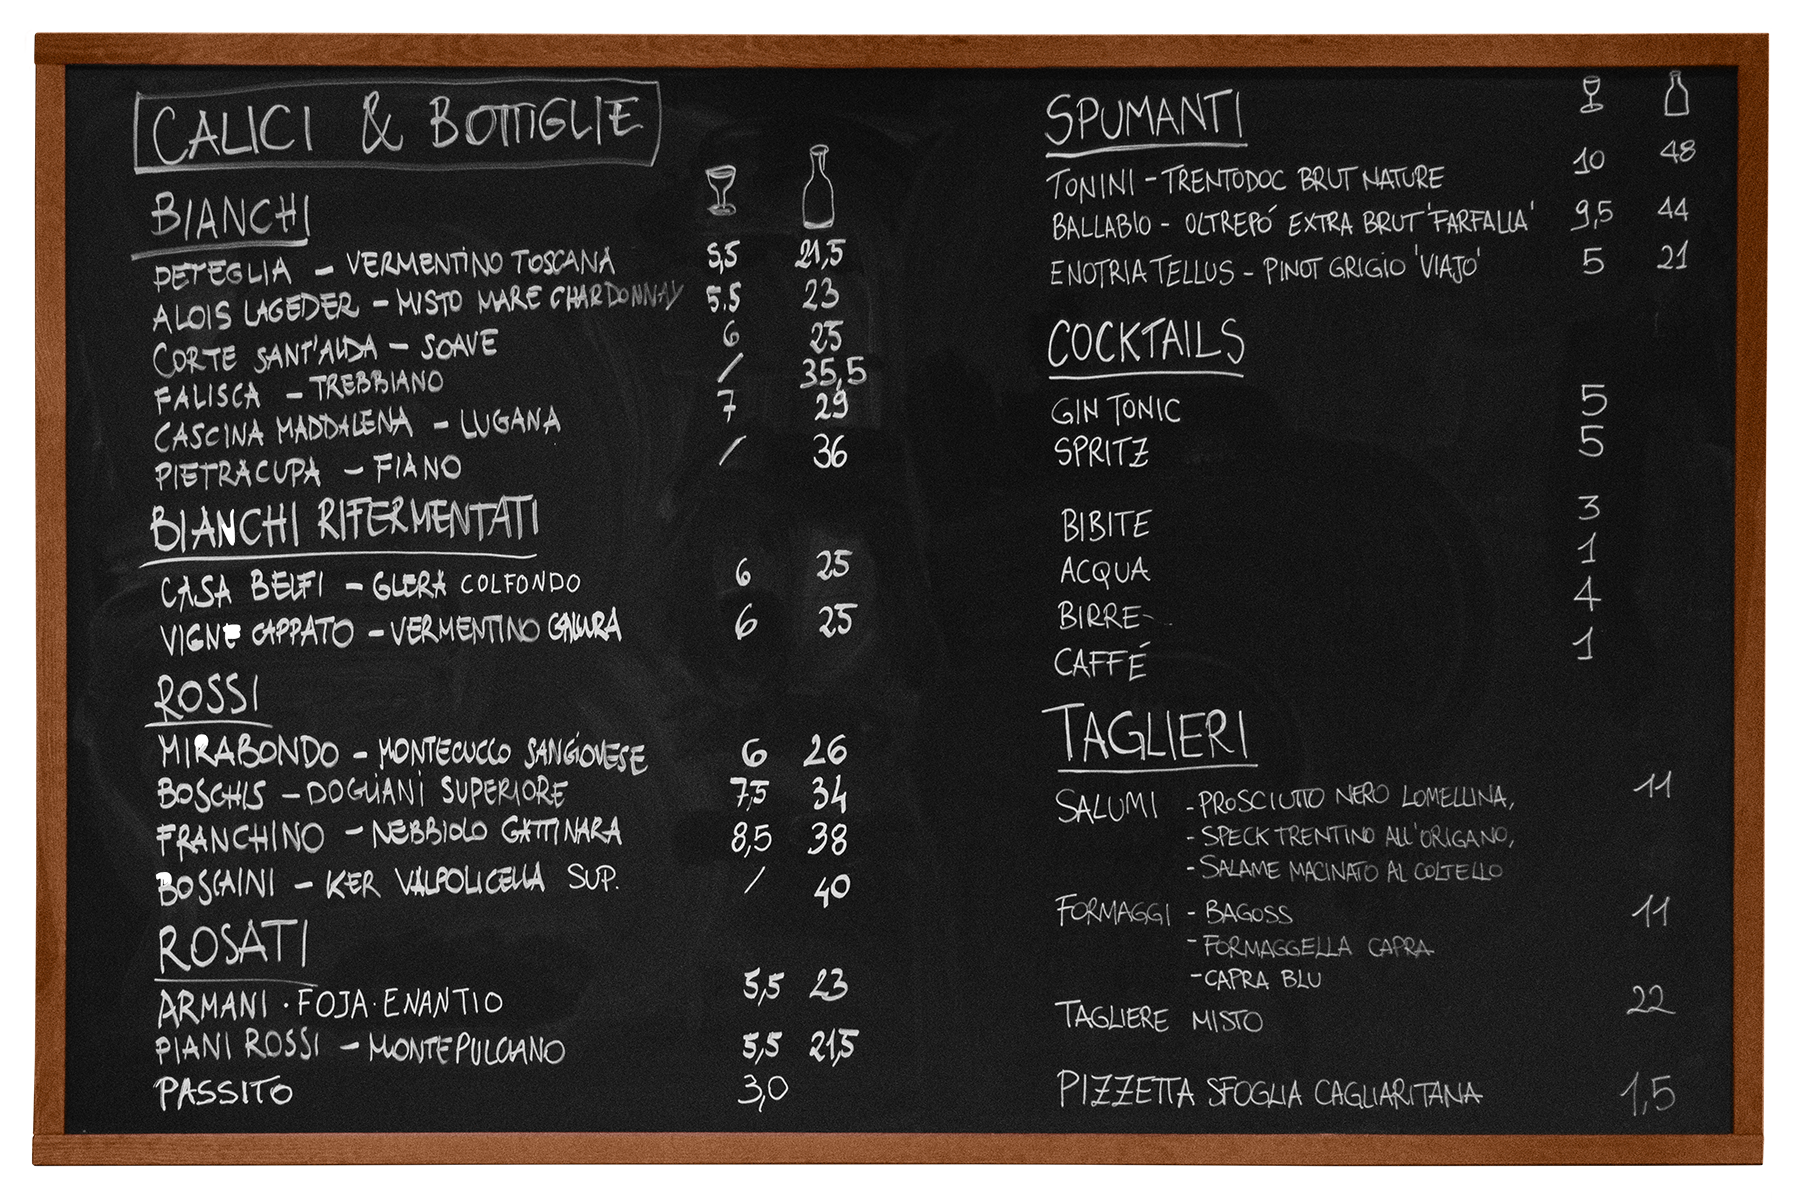 CALICI & BOTTIGLIE
BIANCHI
PETEGLIA - VERMENTINO TOSCANA 5,5 21,5
ALOIS LAGEDER - MISTO MARE CHARDONNAY 5.5 23
CORTE SANT'ALDA - SOAVE 6 25
FALISCA - TREBBIANO / 35,5
CASCINA MADDALENA - LUGANA 7 29
PIETRACUPA - FIANO / 36
BIANCHI RIFERMENTATI
CASA BELFI - GLERA COLFONDO 6 25
VIGNE CAPPATO - VERMENTINO GALLURA 6 25
ROSSI
MIRABONDO - MONTECUCCO SANGIOVESE 6 26
BOSCHIS - DOGLIANI SUPERIORE 7,5 34
FRANCHINO - NEBBIOLO GATTINARA 8,5 38
BOSCAINI - KER VALPOLICELLA SUP. / 40
ROSATI
ARMANI · FOJA · ENANTIO 5,5 23
PIANI ROSSI - MONTEPULCIANO 5,5 21,5
PASSITO 3,0
SPUMANTI
TONINI - TRENTODOC BRUT NATURE 10 48
BALLABIO - OLTREPÓ EXTRA BRUT 'FARFALLA' 9,5 44
ENOTRIA TELLUS - PINOT GRIGIO 'VIAJO' 5 21
COCKTAILS
GIN TONIC 5
SPRITZ 5
BIBITE 3
ACQUA 1
BIRRE 4
CAFFÉ 1
TAGLIERI
SALUMI - PROSCIUTTO NERO LOMELLINA, 11
- SPECK TRENTINO ALL'ORIGANO,
- SALAME MACINATO AL COLTELLO
FORMAGGI - BAGOSS 11
- FORMAGGELLA CAPRA
- CAPRA BLU
TAGLIERE MISTO 22
PIZZETTA SFOGLIA CAGLIARITANA 1,5